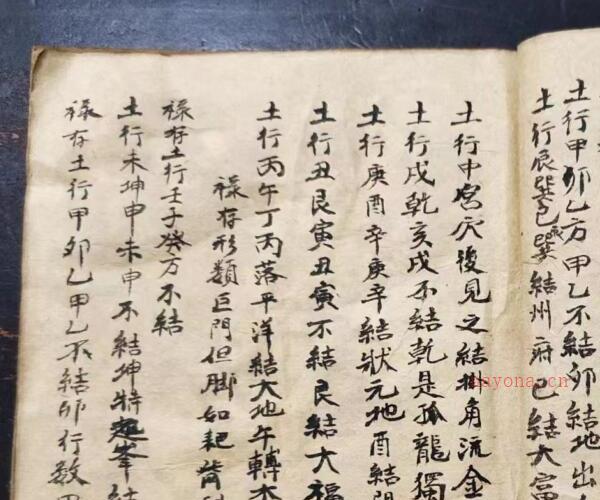 土行甲卯乙方甲乙不結卯結地出
土行辰巽巳巽結州府巳結大富
土行中宮穴後見之結掛角流金
土行戌乾亥戌不結乾是孤龍獨
土行庚酉辛庚辛結狀元地酉結門
土行丑艮寅丑寅不結艮結大福
土行丙午丁丙落平洋結大地午轉
祿存形類巨門但腳如耙齒
祿存土行壬子癸方不結
土行未坤申未申不結坤特起峯結
祿存土行甲卯乙甲乙不結卯行數
nayona.cn